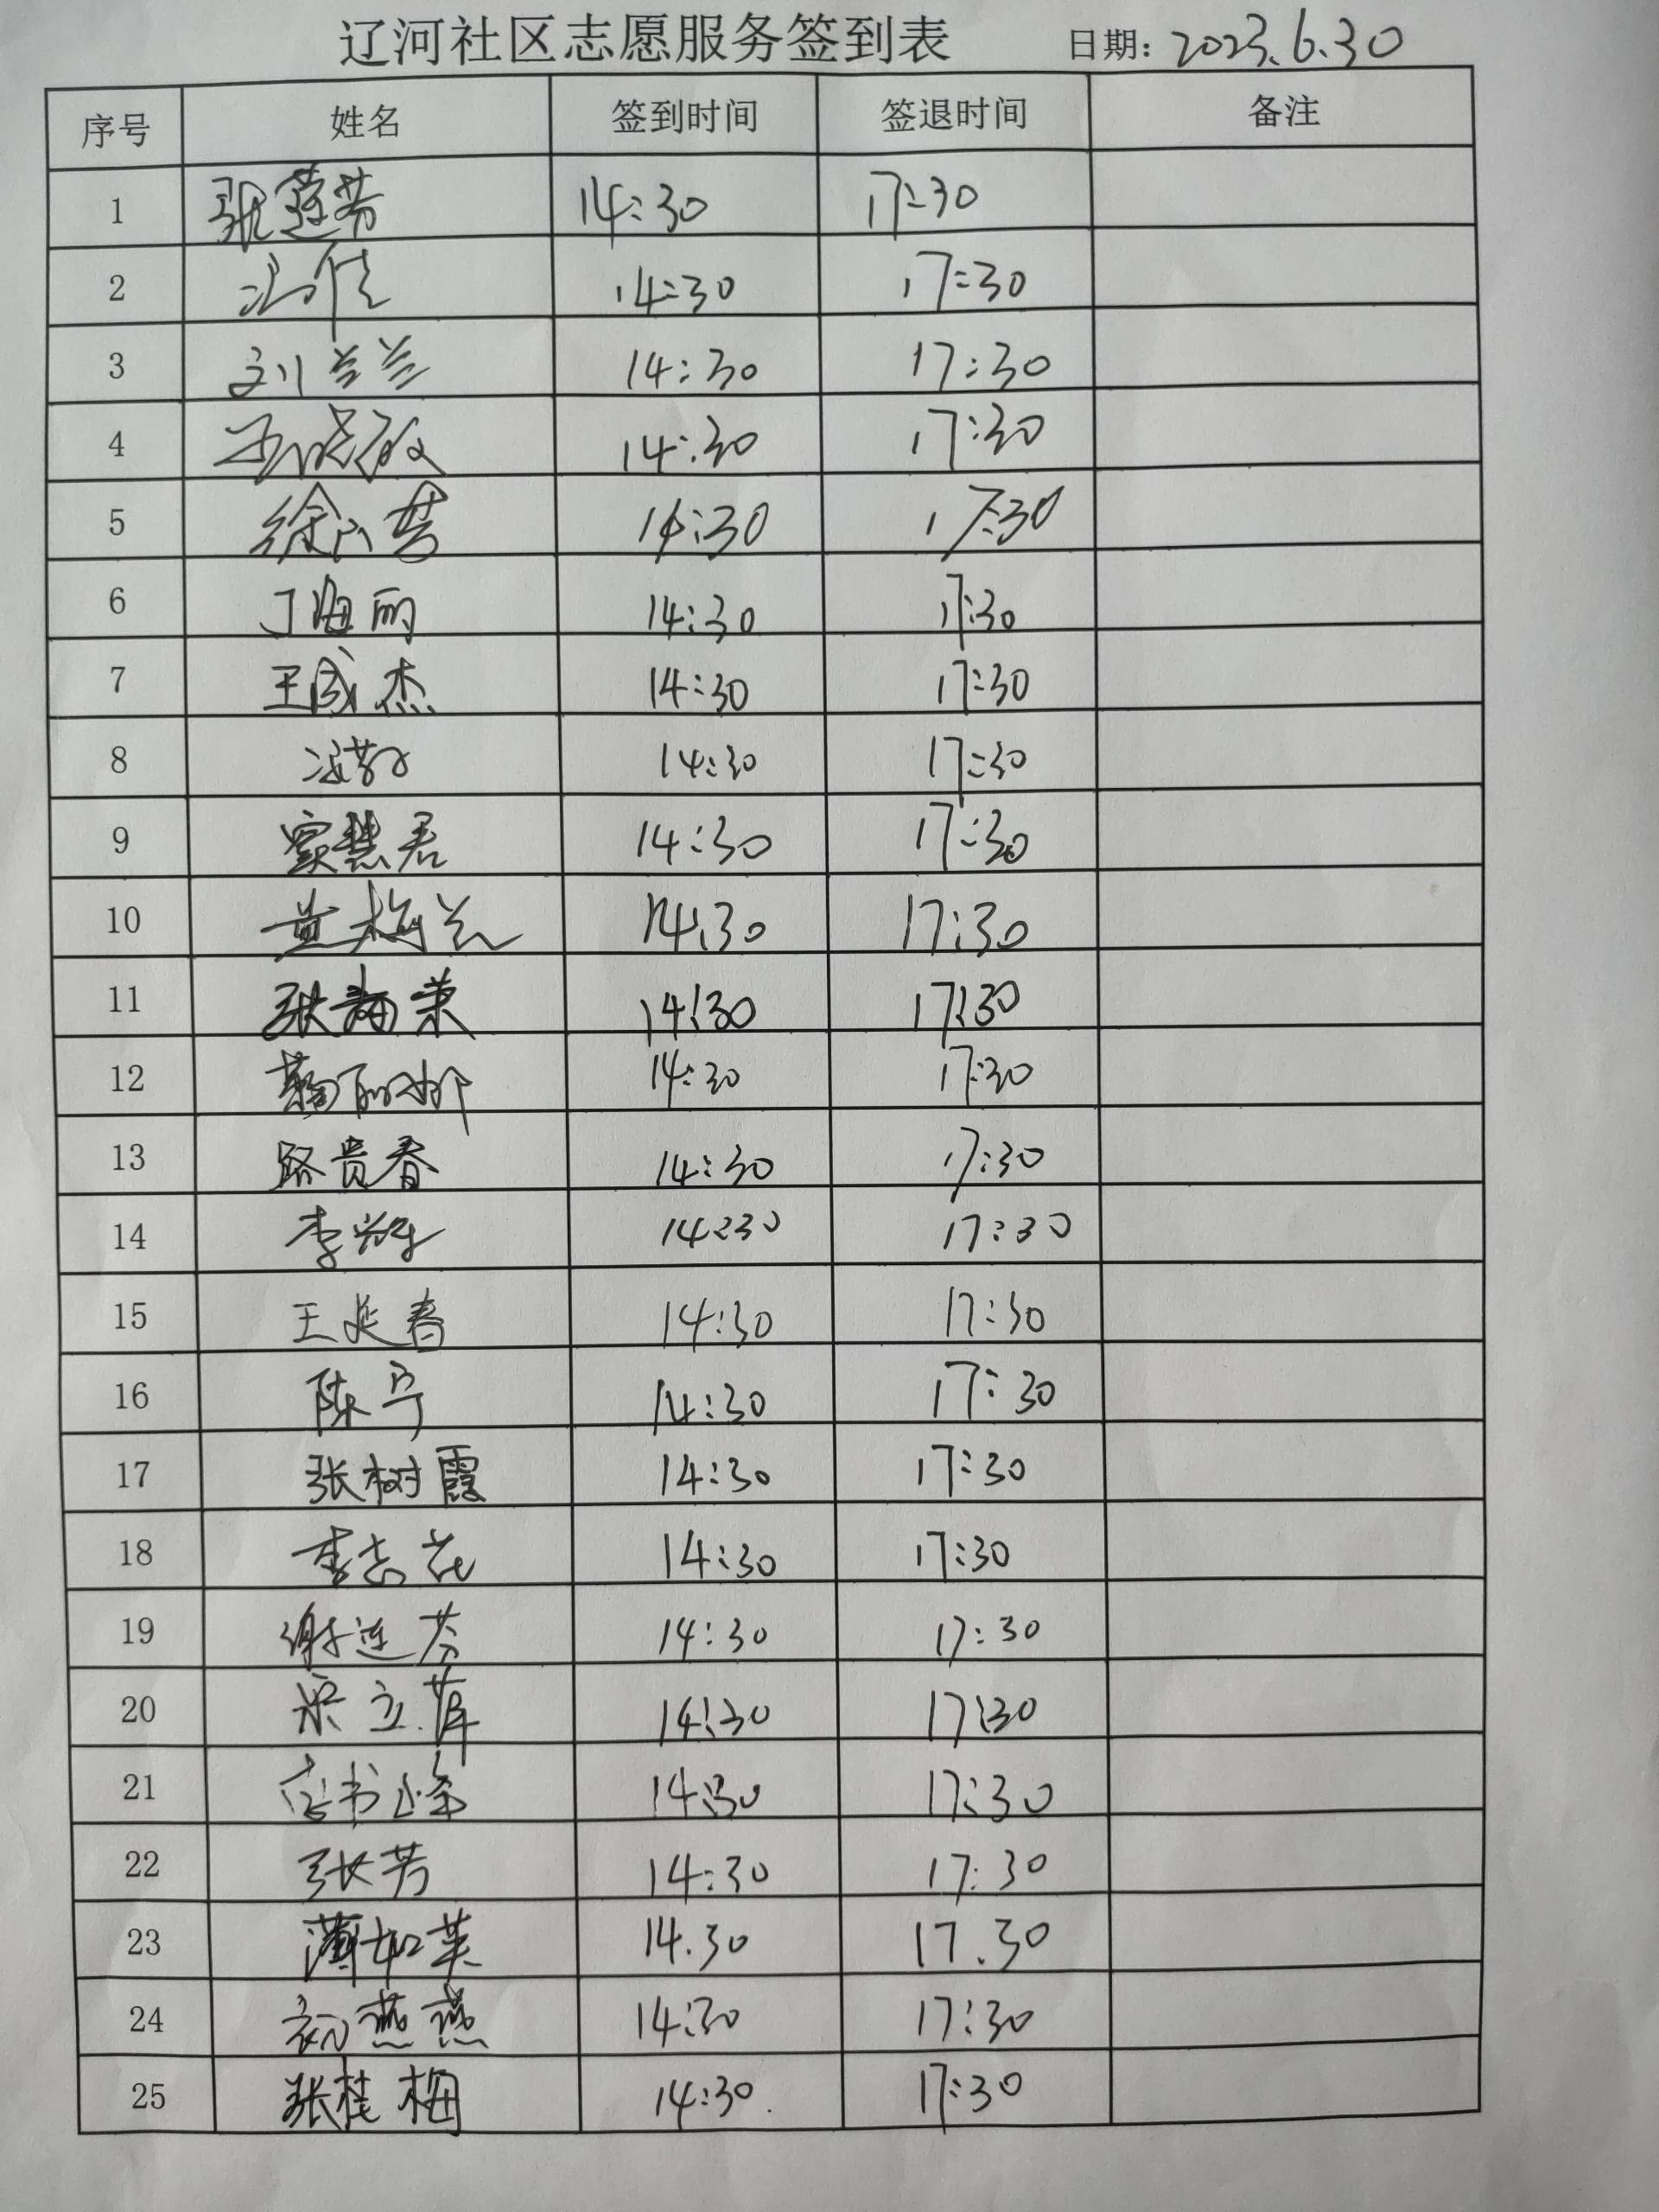 辽河社区志愿服务签到表 日期：2023.6.30
序号 姓名 签到时间 签退时间 备注
1 张莲芳 14:30 17:30
2 冯佳 14:30 17:30
3 刘兰兰 14:30 17:30
4 14:30 17:30
5 14:30 17:30
6 丁海丽 14:30 17:30
7 王威杰 14:30 17:30
8 14:30 17:30
9 窦慧君 14:30 17:30
10 黄梅兰 14:30 17:30
11 14:30 17:30
12 鞠丽娜 14:30 17:30
13 路贵春 14:30 17:30
14 14:30 17:30
15 王延春 14:30 17:30
16 陈宁 14:30 17:30
17 张树霞 14:30 17:30
18 李志花 14:30 17:30
19 谢连芬 14:30 17:30
20 14:30 17:30
21 14:30 17:30
22 张芳 14:30 17:30
23 薄如英 14.30 17.30
24 初燕燕 14:30 17:30
25 张桂梅 14:30. 17:30